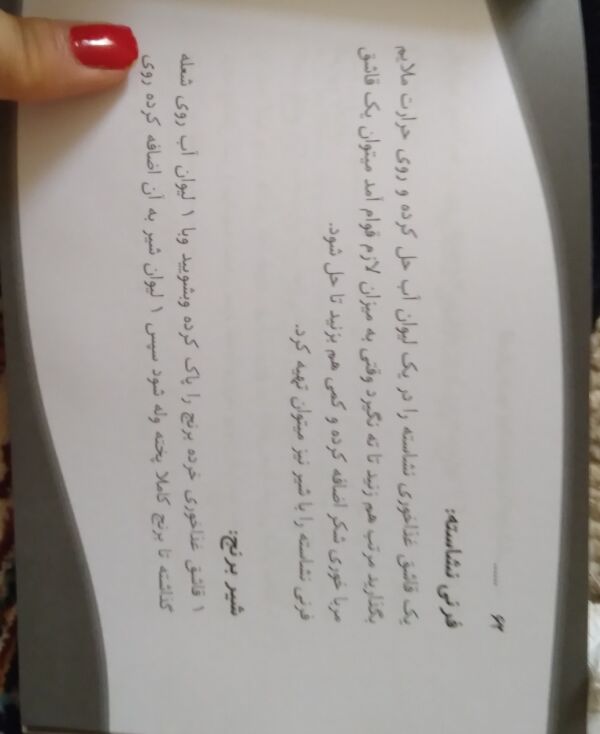 ۶۲ .....
فرنی نشاسته:
یک قاشق غذاخوری نشاسته را در یک لیوان آب حل کرده و روی حرارت ملایم
بگذارید مرتب هم زنید تا ته نگیرد وقتی به میزان لازم قوام آمد میتوان یک قاشق
مربا خوری شکر اضافه کرده و کمی هم بزنید تا حل شود.
فرنی نشاسته را با شیر نیز میتوان تهیه کرد.
شیر برنج:
۱ قاشق غذاخوری خرده برنج را پاک کرده وبشویید وبا ۱ لیوان آب روی شعله
گذاشته تا برنج کاملا پخته وله شود سپس ۱ لیوان شیر به آن اضافه کرده روی